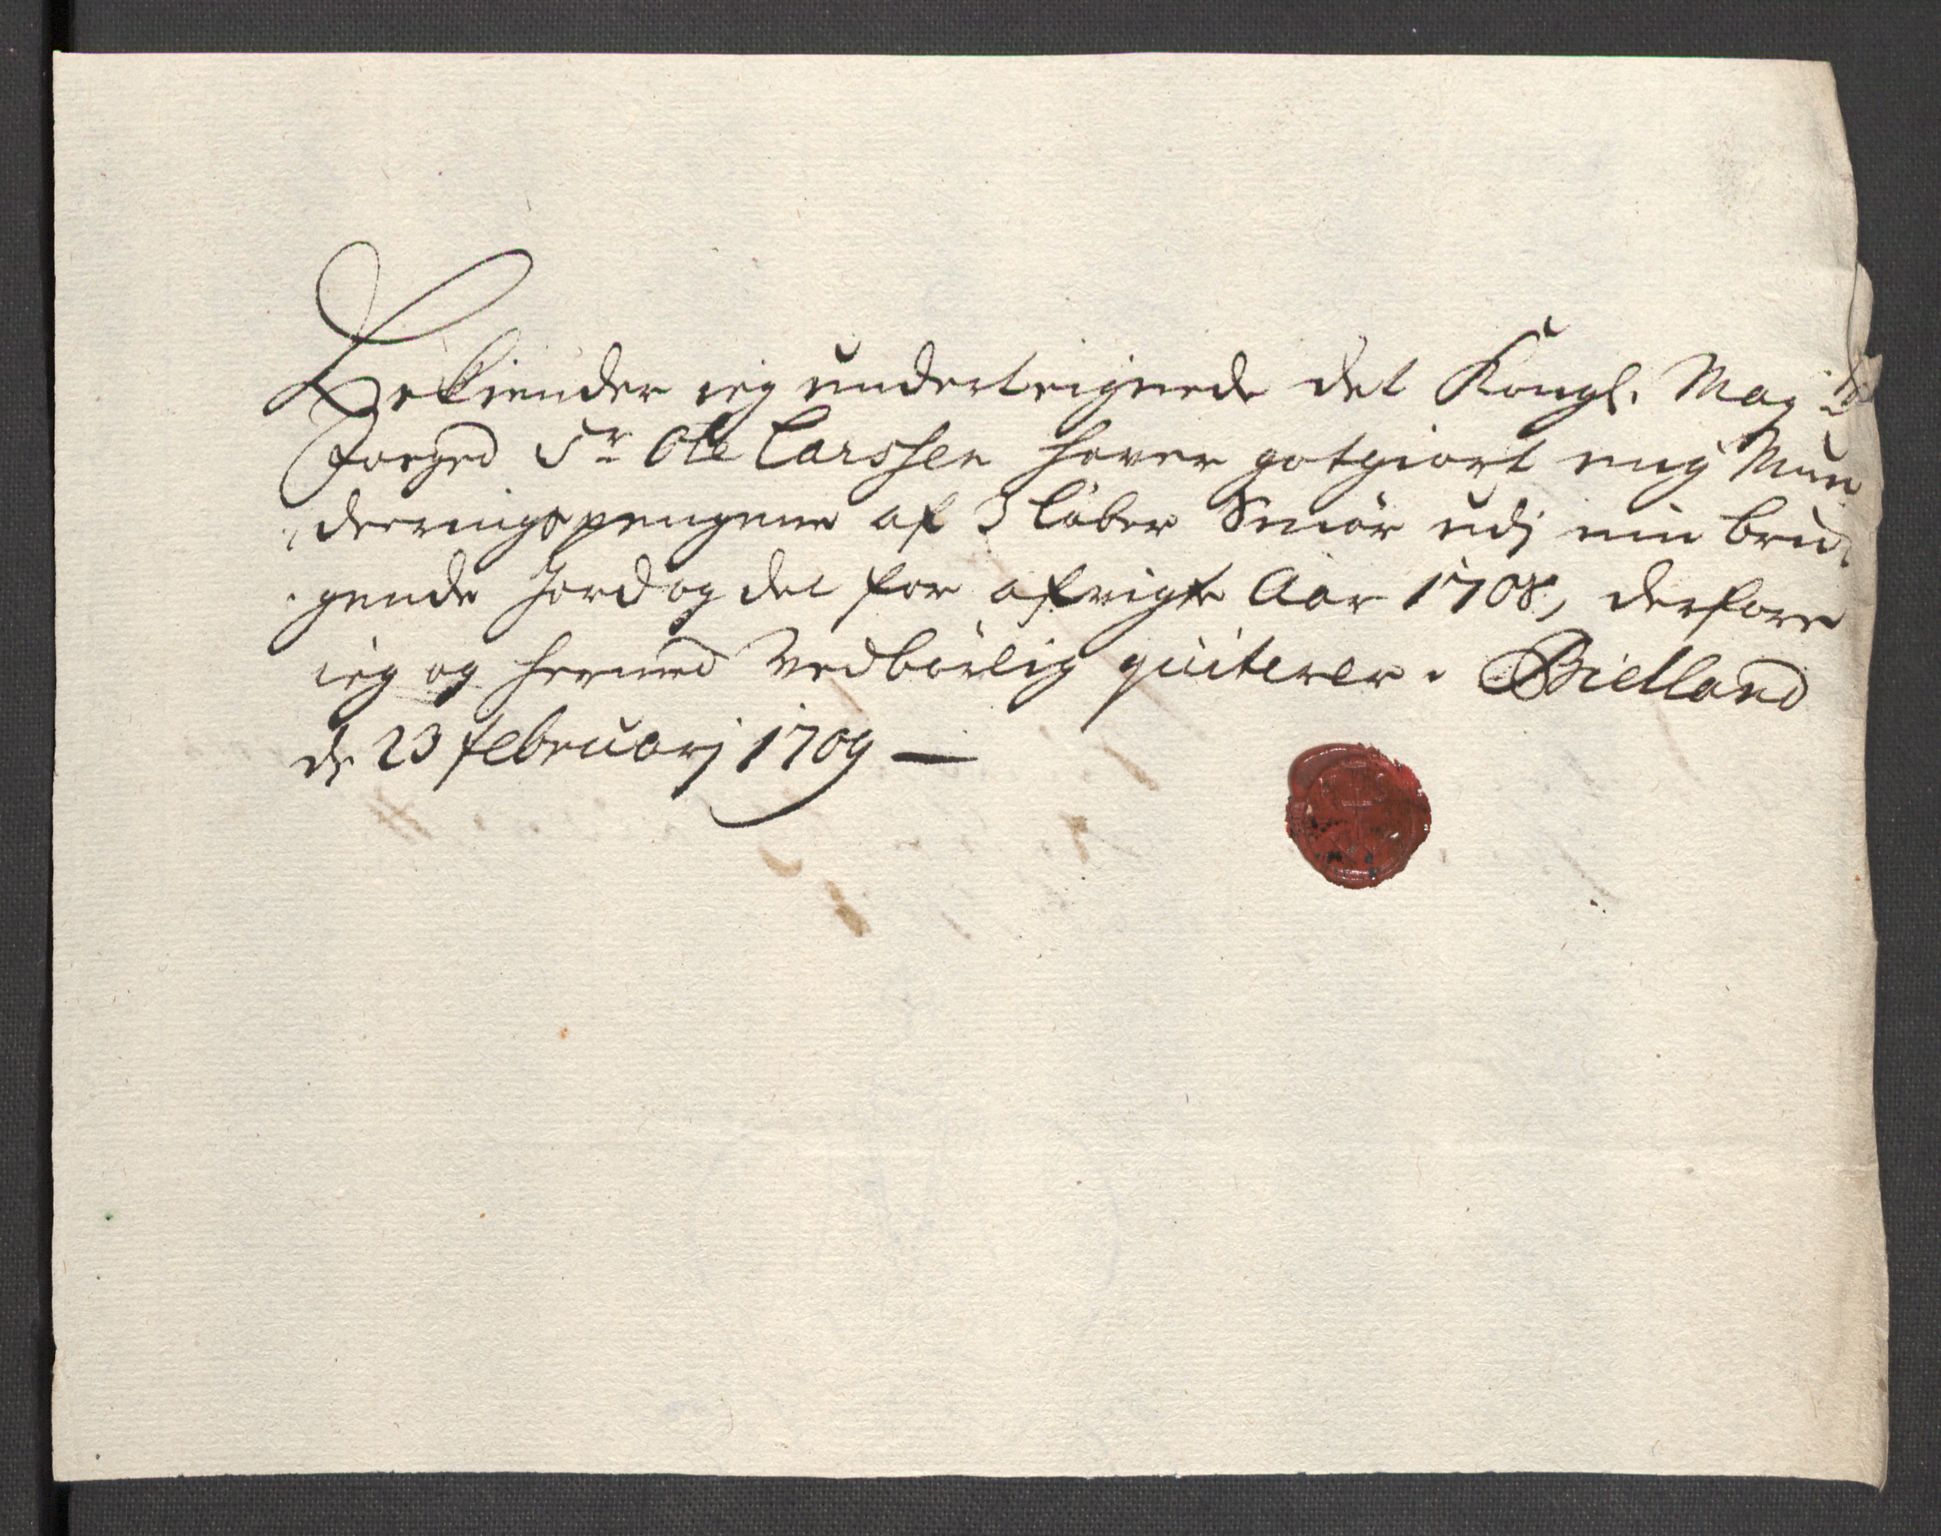 Bekiender ieg underteignede det Kongl. May:ts
Foeged Sr Ole Larssen haver gotgiort mig Mun
deeringspengene af 3 Løber Smør udj min brug
gende Jord og det for afvigte Aar 1708, derfore
ieg og hermed Vedbørlig quiterer. Bielland
de 23 februarj 1709